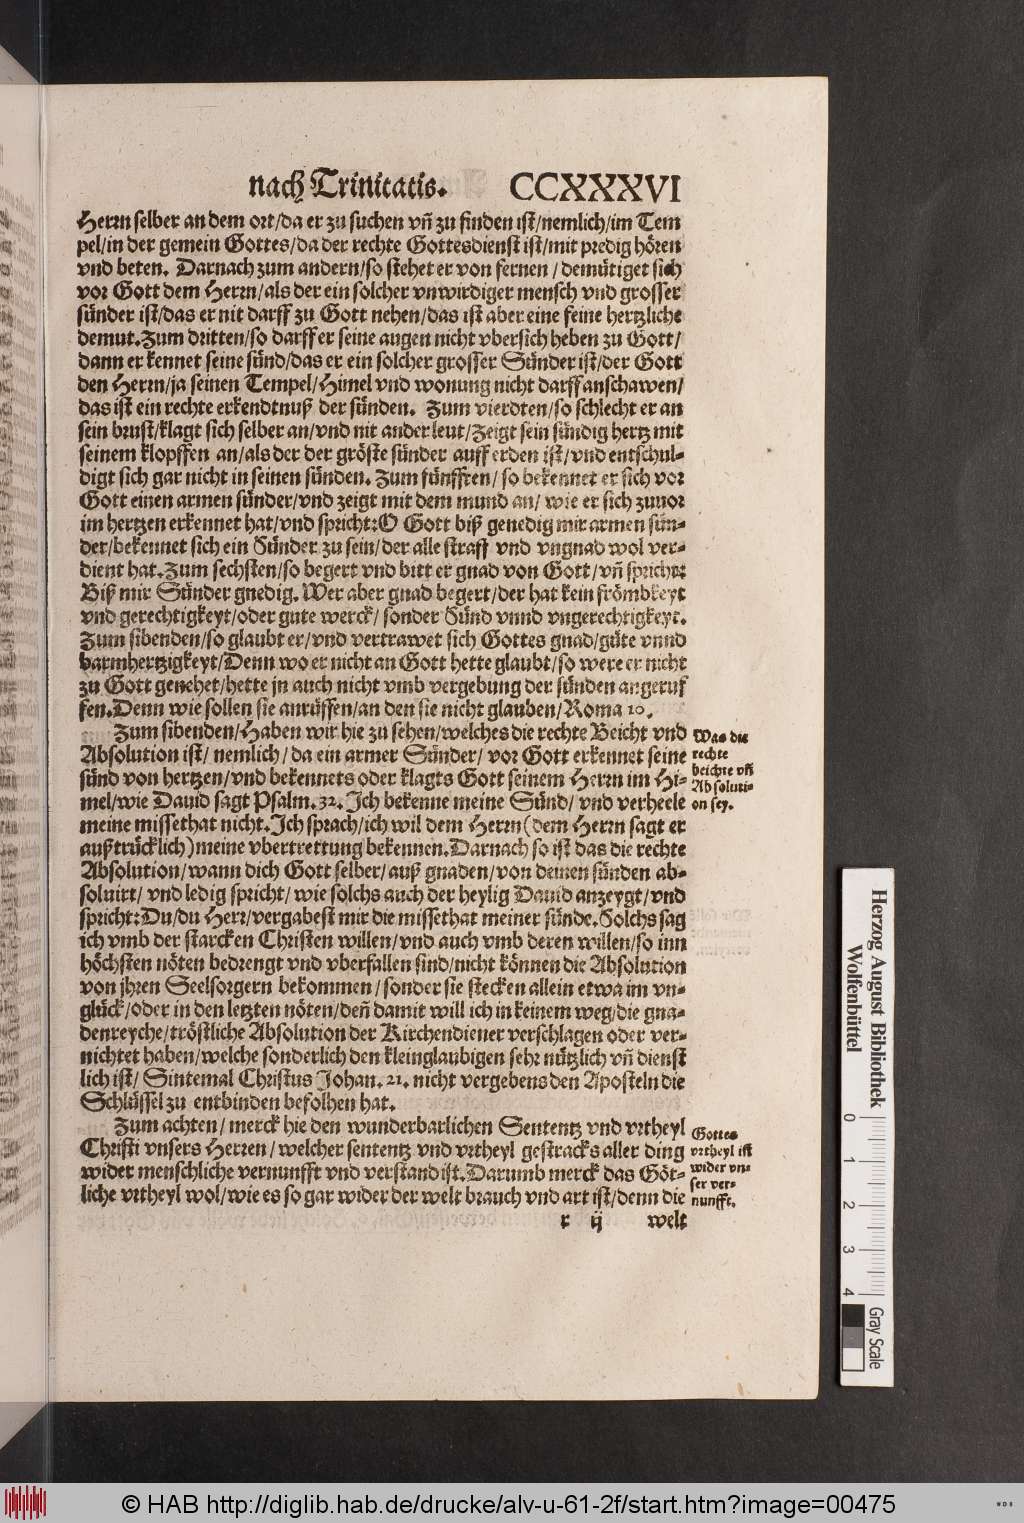 nach Trinitatis. CCXXXVI
Herrn selber an dem ort/da er zu suchen vn̄ zu finden ist/nemlich/im Tem
pel/in der gemein Gottes/da der rechte Gottesdienst ist/mit predig hören
vnd beten. Darnach zum andern/so stehet er von fernen/demütiget sich
vor Gott dem Herrn/als der ein solcher vnwirdiger mensch vnd grosser
sünder ist/das er nit darff zu Gott nehen/das ist aber eine feine hertzliche
demut.Zum dritten/so darff er seine augen nicht vbersich heben zu Gott/
dann er kennet seine sünd/das er ein solcher grosser Sünder ist/der Gott
den Herrn/ja seinen Tempel/Himel vnd wonung nicht darff anschawen/
das ist ein rechte erkendtnuß der sünden. Zum vierdten/so schlecht er an
sein brust/klagt sich selber an/vnd nit ander leut/Zeigt sein sündig hertz mit
seinem klopffen an/als der der gröste sünder auff erden ist/vnd entschul-
digt sich gar nicht in seinen sünden. Zum fünfften/ so bekennet er sich vor
Gott einen armen sünder/vnd zeigt mit dem mund an/ wie er sich zuuor
im hertzen erkennet hat/vnd spricht:O Gott biß genedig mir armen sün-
der/bekennet sich ein Sünder zu sein/der alle straff vnd vngnad wol ver-
dient hat.Zum sechsten/so begert vnd bitt er gnad von Gott/vn̄ spricht:
Biß mir Sünder gnedig. Wer aber gnad begert/der hat kein frömbkeyt
vnd gerechtigkeyt/oder gute werck/ sonder Sünd vnnd vngerechtigkeyt.
Zum sibenden/so glaubt er/vnd vertrawet sich Gottes gnad/güte vnnd
barmhertzigkeyt/Denn wo er nicht an Gott hette glaubt/so were er nicht
zu Gott genehet/hette jn auch nicht vmb vergebung der sünden angeruf
fen.Denn wie sollen sie anrüffen/an den sie nicht glauben/Roma 10.
Zum sibenden/Haben wir hie zu sehen/welches die rechte Beicht vnd
Absolution ist/ nemlich/da ein armer Sünder/ vor Gott erkennet seine
sünd von hertzen/vnd bekennets oder klagts Gott seinem Herrn im Hi-
mel/wie Dauid sagt Psalm.32.Ich bekenne meine Sünd/ vnd verheele
meine missethat nicht.Ich sprach/ich wil dem Herrn(dem Herrn sagt er
außtrücklich)meine vbertrettung bekennen.Darnach so ist das die rechte
Absolution/wann dich Gott selber/auß gnaden/von deinen sünden ab-
soluirt/ vnd ledig spricht/ wie solchs auch der heylig Dauid anzeygt/vnd
spricht:Du/du Herr/vergabest mir die missethat meiner sünde.Solchs sag
ich vmb der starcken Christen willen/vnd auch vmb deren willen/so inn
höchsten nöten bedrengt vnd vberfallen sind/nicht können die Absolution
von jhren Seelsorgern bekommen/sonder sie stecken allein etwa im vn-
glück/oder in den letzten nöten/den̄ damit will ich in keinem weg/die gna-
denreyche/tröstliche Absolution der Kirchendiener verschlagen oder ver-
nichtet haben/welche sonderlich den kleinglaubigen sehr nützlich vn̄ dienst
lich ist/ Sintemal Christus Johan.21. nicht vergebens den Aposteln die
Schlüssel zu entbinden befolhen hat.
Was die
rechte
beichte vn̄
Absoluti-
on sey.
Zum achten/ merck hie den wunderbarlichen Sententz vnd vrtheyl
Christi vnsers Herren/welcher sententz vnd vrtheyl gestracks aller ding
wider menschliche vernunfft vnd verstand ist.Darumb merck das Göt-
liche vrtheyl wol/wie es so gar wider der welt brauch vnd art ist/denn die
Gottes
vrtheyl ist
wider vn-
ser ver-
nunfft.
r ij welt
Herzog August Bibliothek
Wolfenbüttel
0 1 2 3 4
Gray Scale
© HAB http://diglib.hab.de/drucke/alv-u-61-2f/start.htm?image=00475